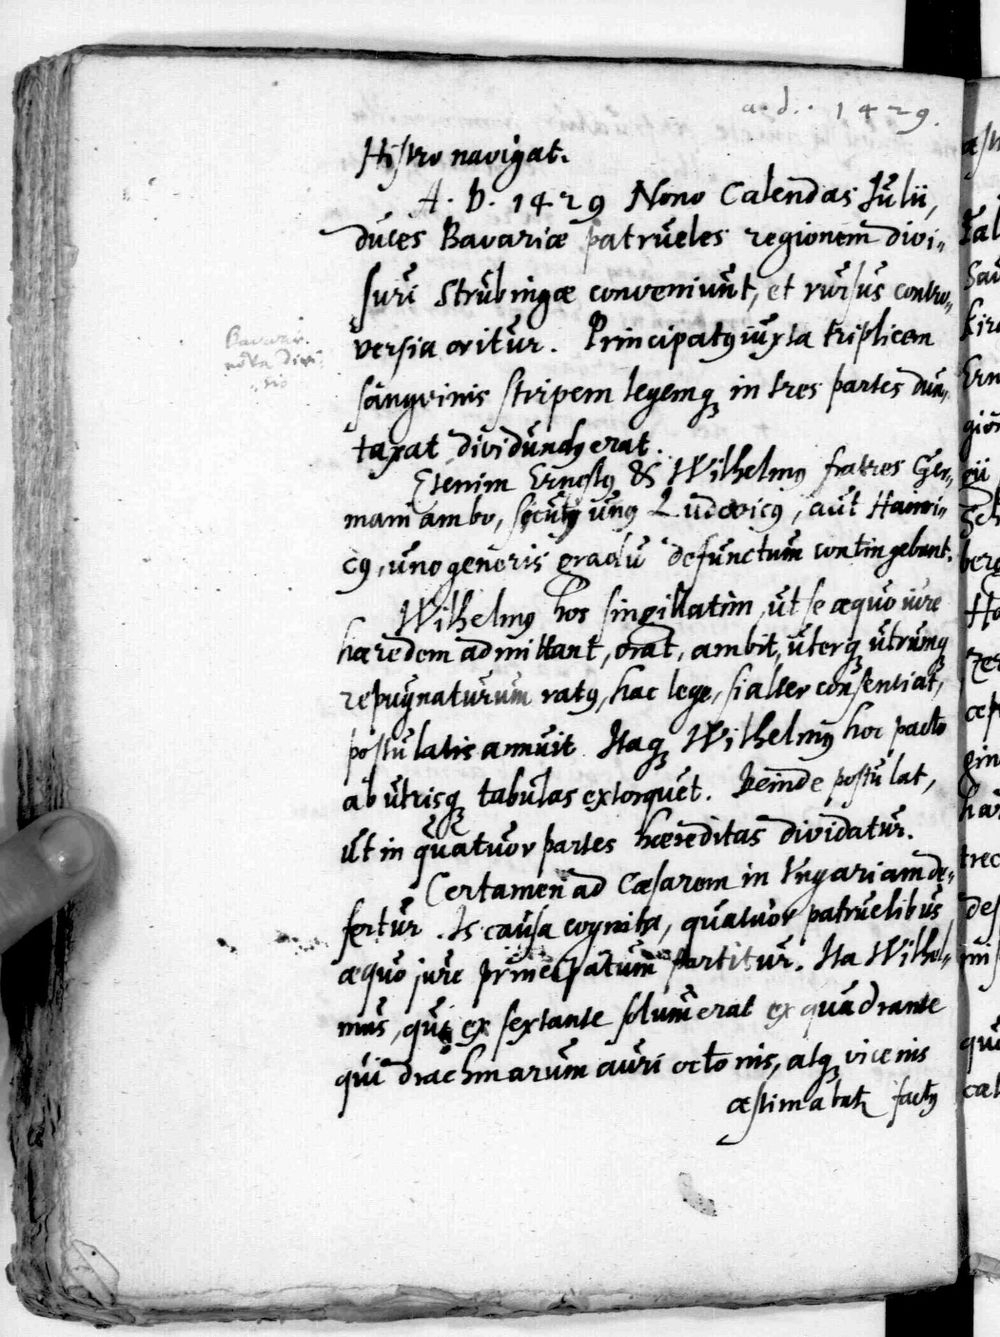 a. d. 1429.
Histro navigat.
A. D. 1429 Nono Calendas Iulii,
duces Bavariæ patrueles regionem divi„
suri Strubingæ conveniunt, et rursus contro„
versia oritur. Principatꝰ iuxta triplicem
Bavariæ
nova divi„
„sio
sangvinis stirpem legemqꝫ in tres partes dun„
taxat dividundꝰ erat.
Etenim Ernestꝰ & Wilhelmꝰ fratres Ger„
mani ambo, unꝰ Ludovicꝰ, aut Hainri„
cꝰ, uno generis gradu defunctum contingebant.
Wilhelmꝰ hos singillatim, ut se æquo iure
hæredem admittant, orat, ambit, uterqꝫ utrumqꝫ
repugnaturum ratꝰ, hac lege, si alter consentiat,
postulatis annuit. Itaqꝫ Wilhelmꝰ hoc pacto
ab utrisqꝫ tabulas extorquet. Deinde postulat,
ut in quatuor partes hæreditas dividatur.
Certamen ad Cæsarem in Ungariam de„
fertur. Is causa cognita, quatuor patruelibus
æquo jure principatum partitur. Ita Wilhel„
mus, qui ex sextante solum erat ex quadrante
qui drachmarum auri octonis, atqꝫ vicenis
æstimabatꝛ factꝰ